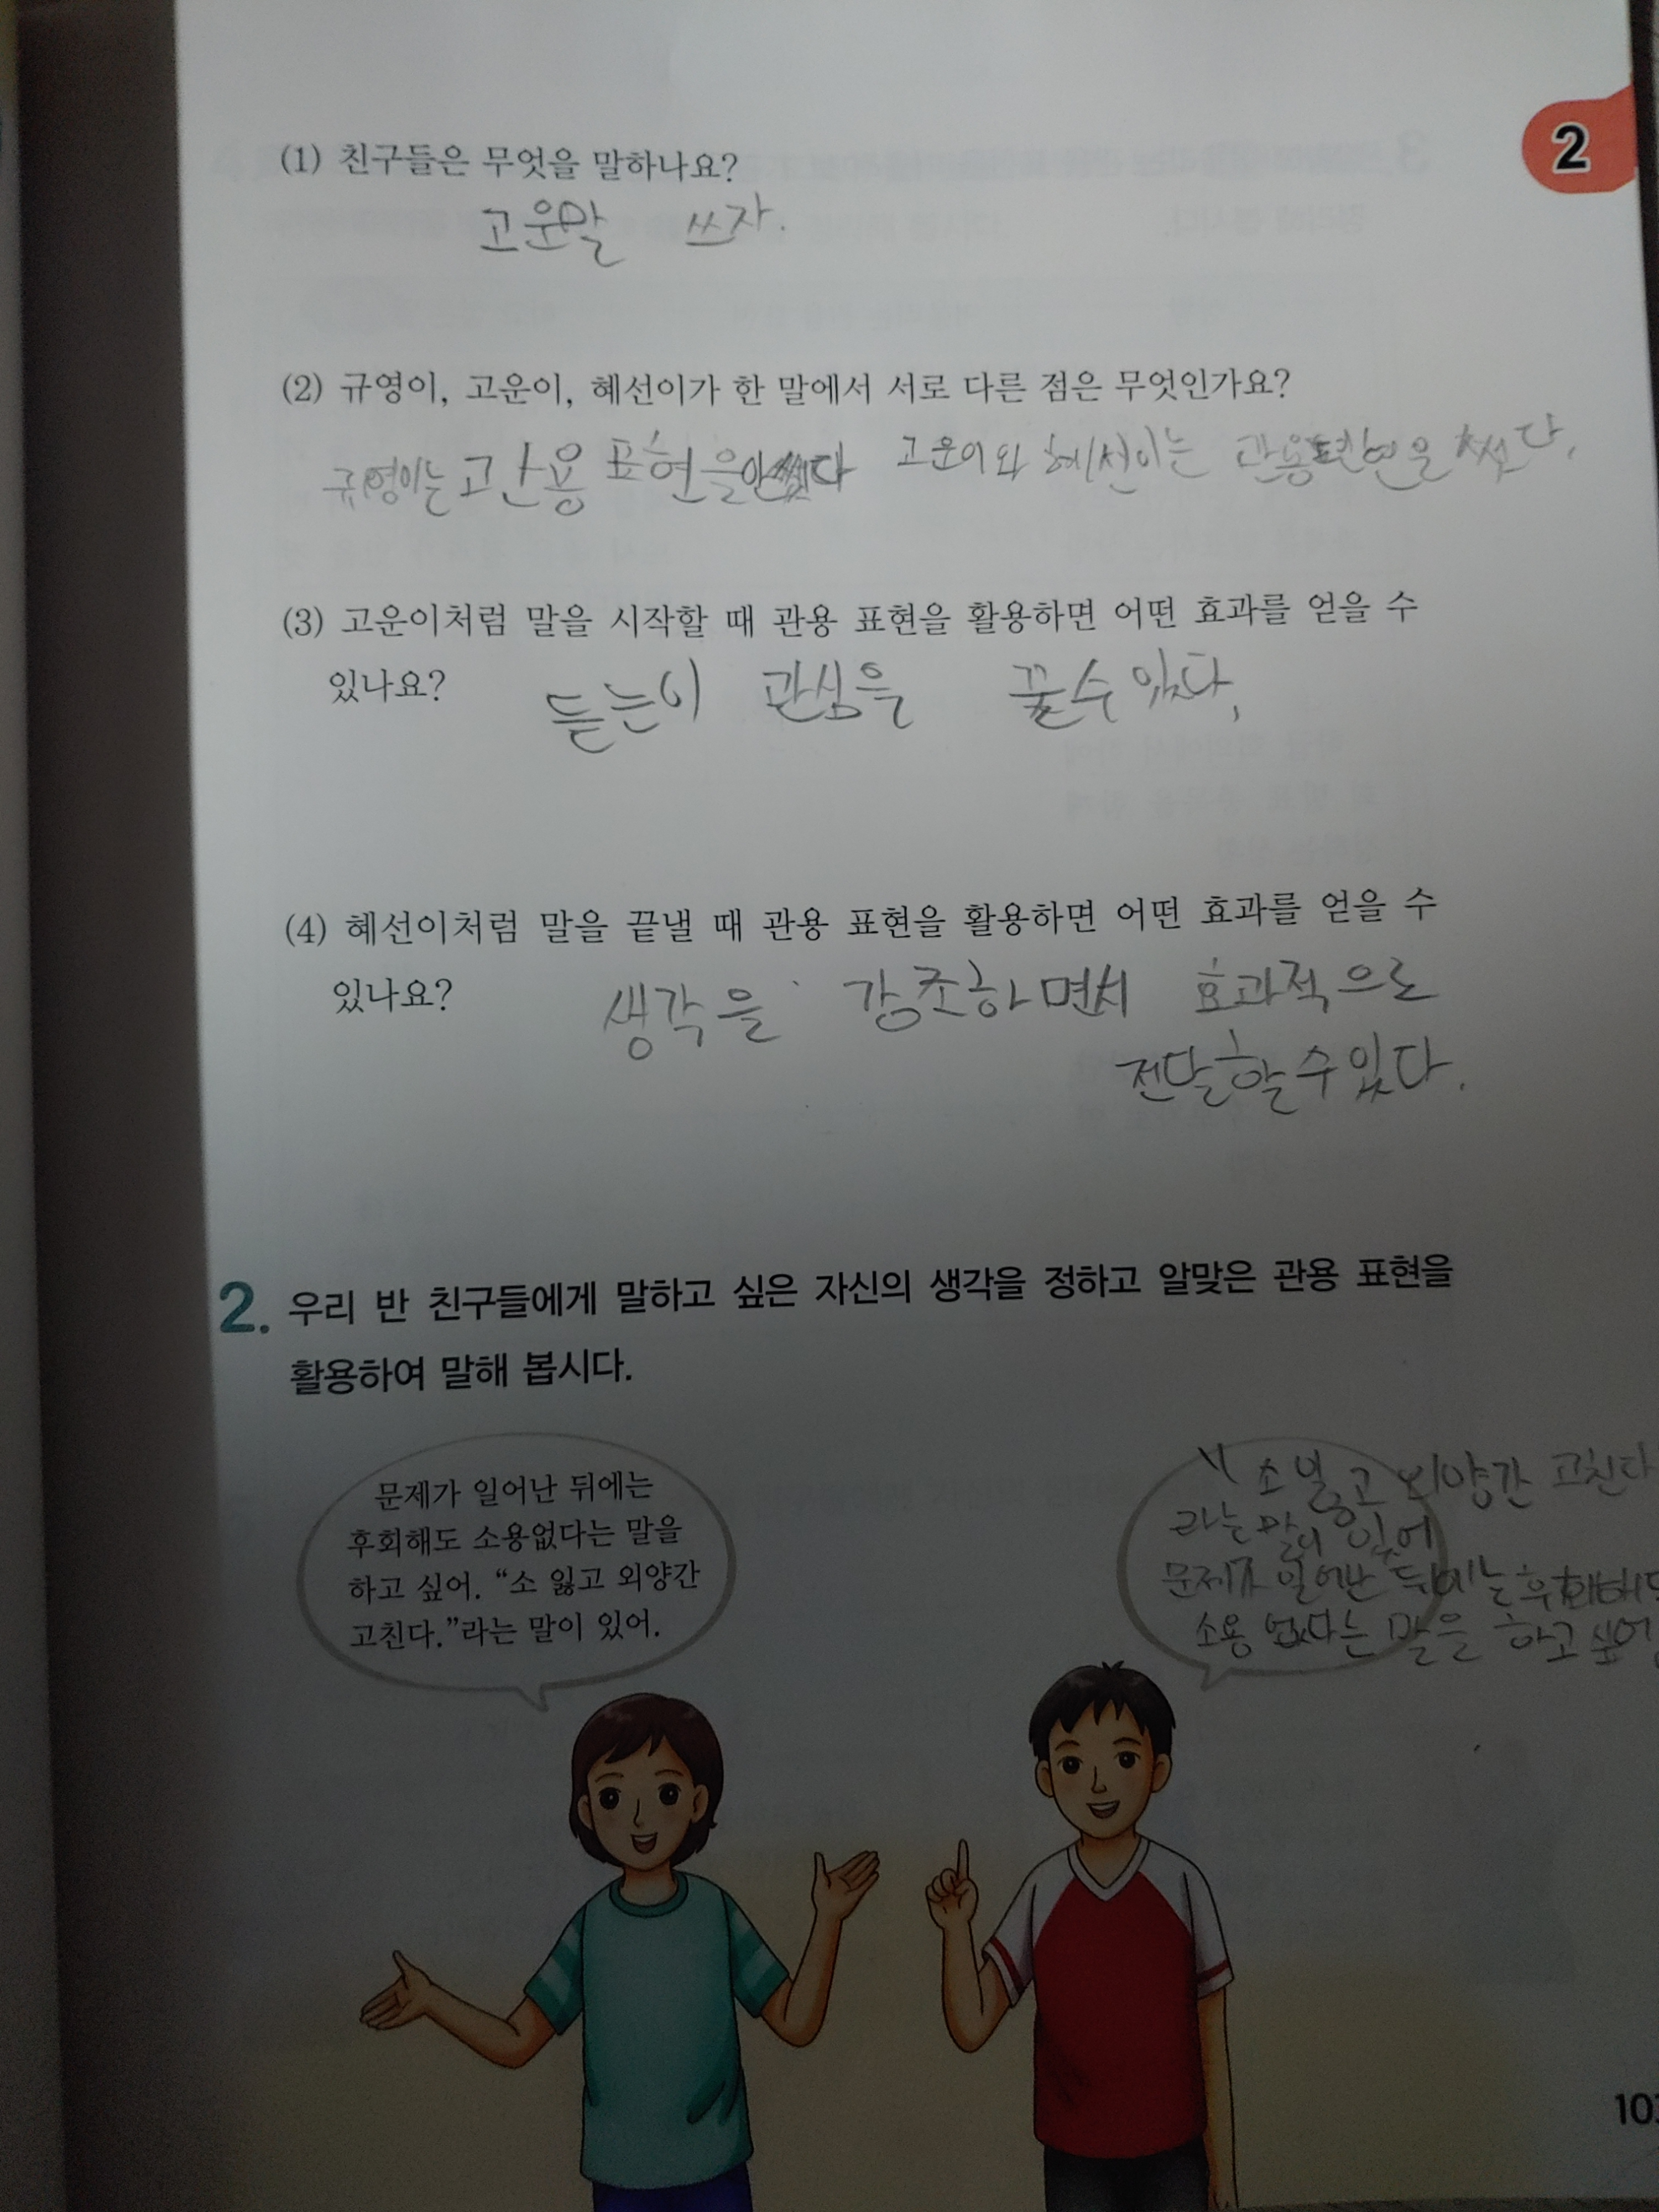 2
(1) 친구들은 무엇을 말하나요?
고운말 쓰자.
(2) 규영이, 고운이, 혜선이가 한 말에서 서로 다른 점은 무엇인가요?
규영이는 고관용 표현을 안썼다 고운이와 혜선이는 관용표현을 썼다.
(3) 고운이처럼 말을 시작할 때 관용 표현을 활용하면 어떤 효과를 얻을 수
있나요?
듣는이 관심을 끌수 있다,
(4) 혜선이처럼 말을 끝낼 때 관용 표현을 활용하면 어떤 효과를 얻을 수
있나요?
생각을 강조하면서 효과적으로
전달할 수 있다.
2. 우리 반 친구들에게 말하고 싶은 자신의 생각을 정하고 알맞은 관용 표현을
활용하여 말해 봅시다.
문제가 일어난 뒤에는
후회해도 소용없다는 말을
하고 싶어. “소 잃고 외양간
고친다.”라는 말이 있어.
"소 잃고 외양간 고친다
라는 말이 있어
문제가 일어난 뒤에는 후회해도
소용 없다는 말을 하고 싶어